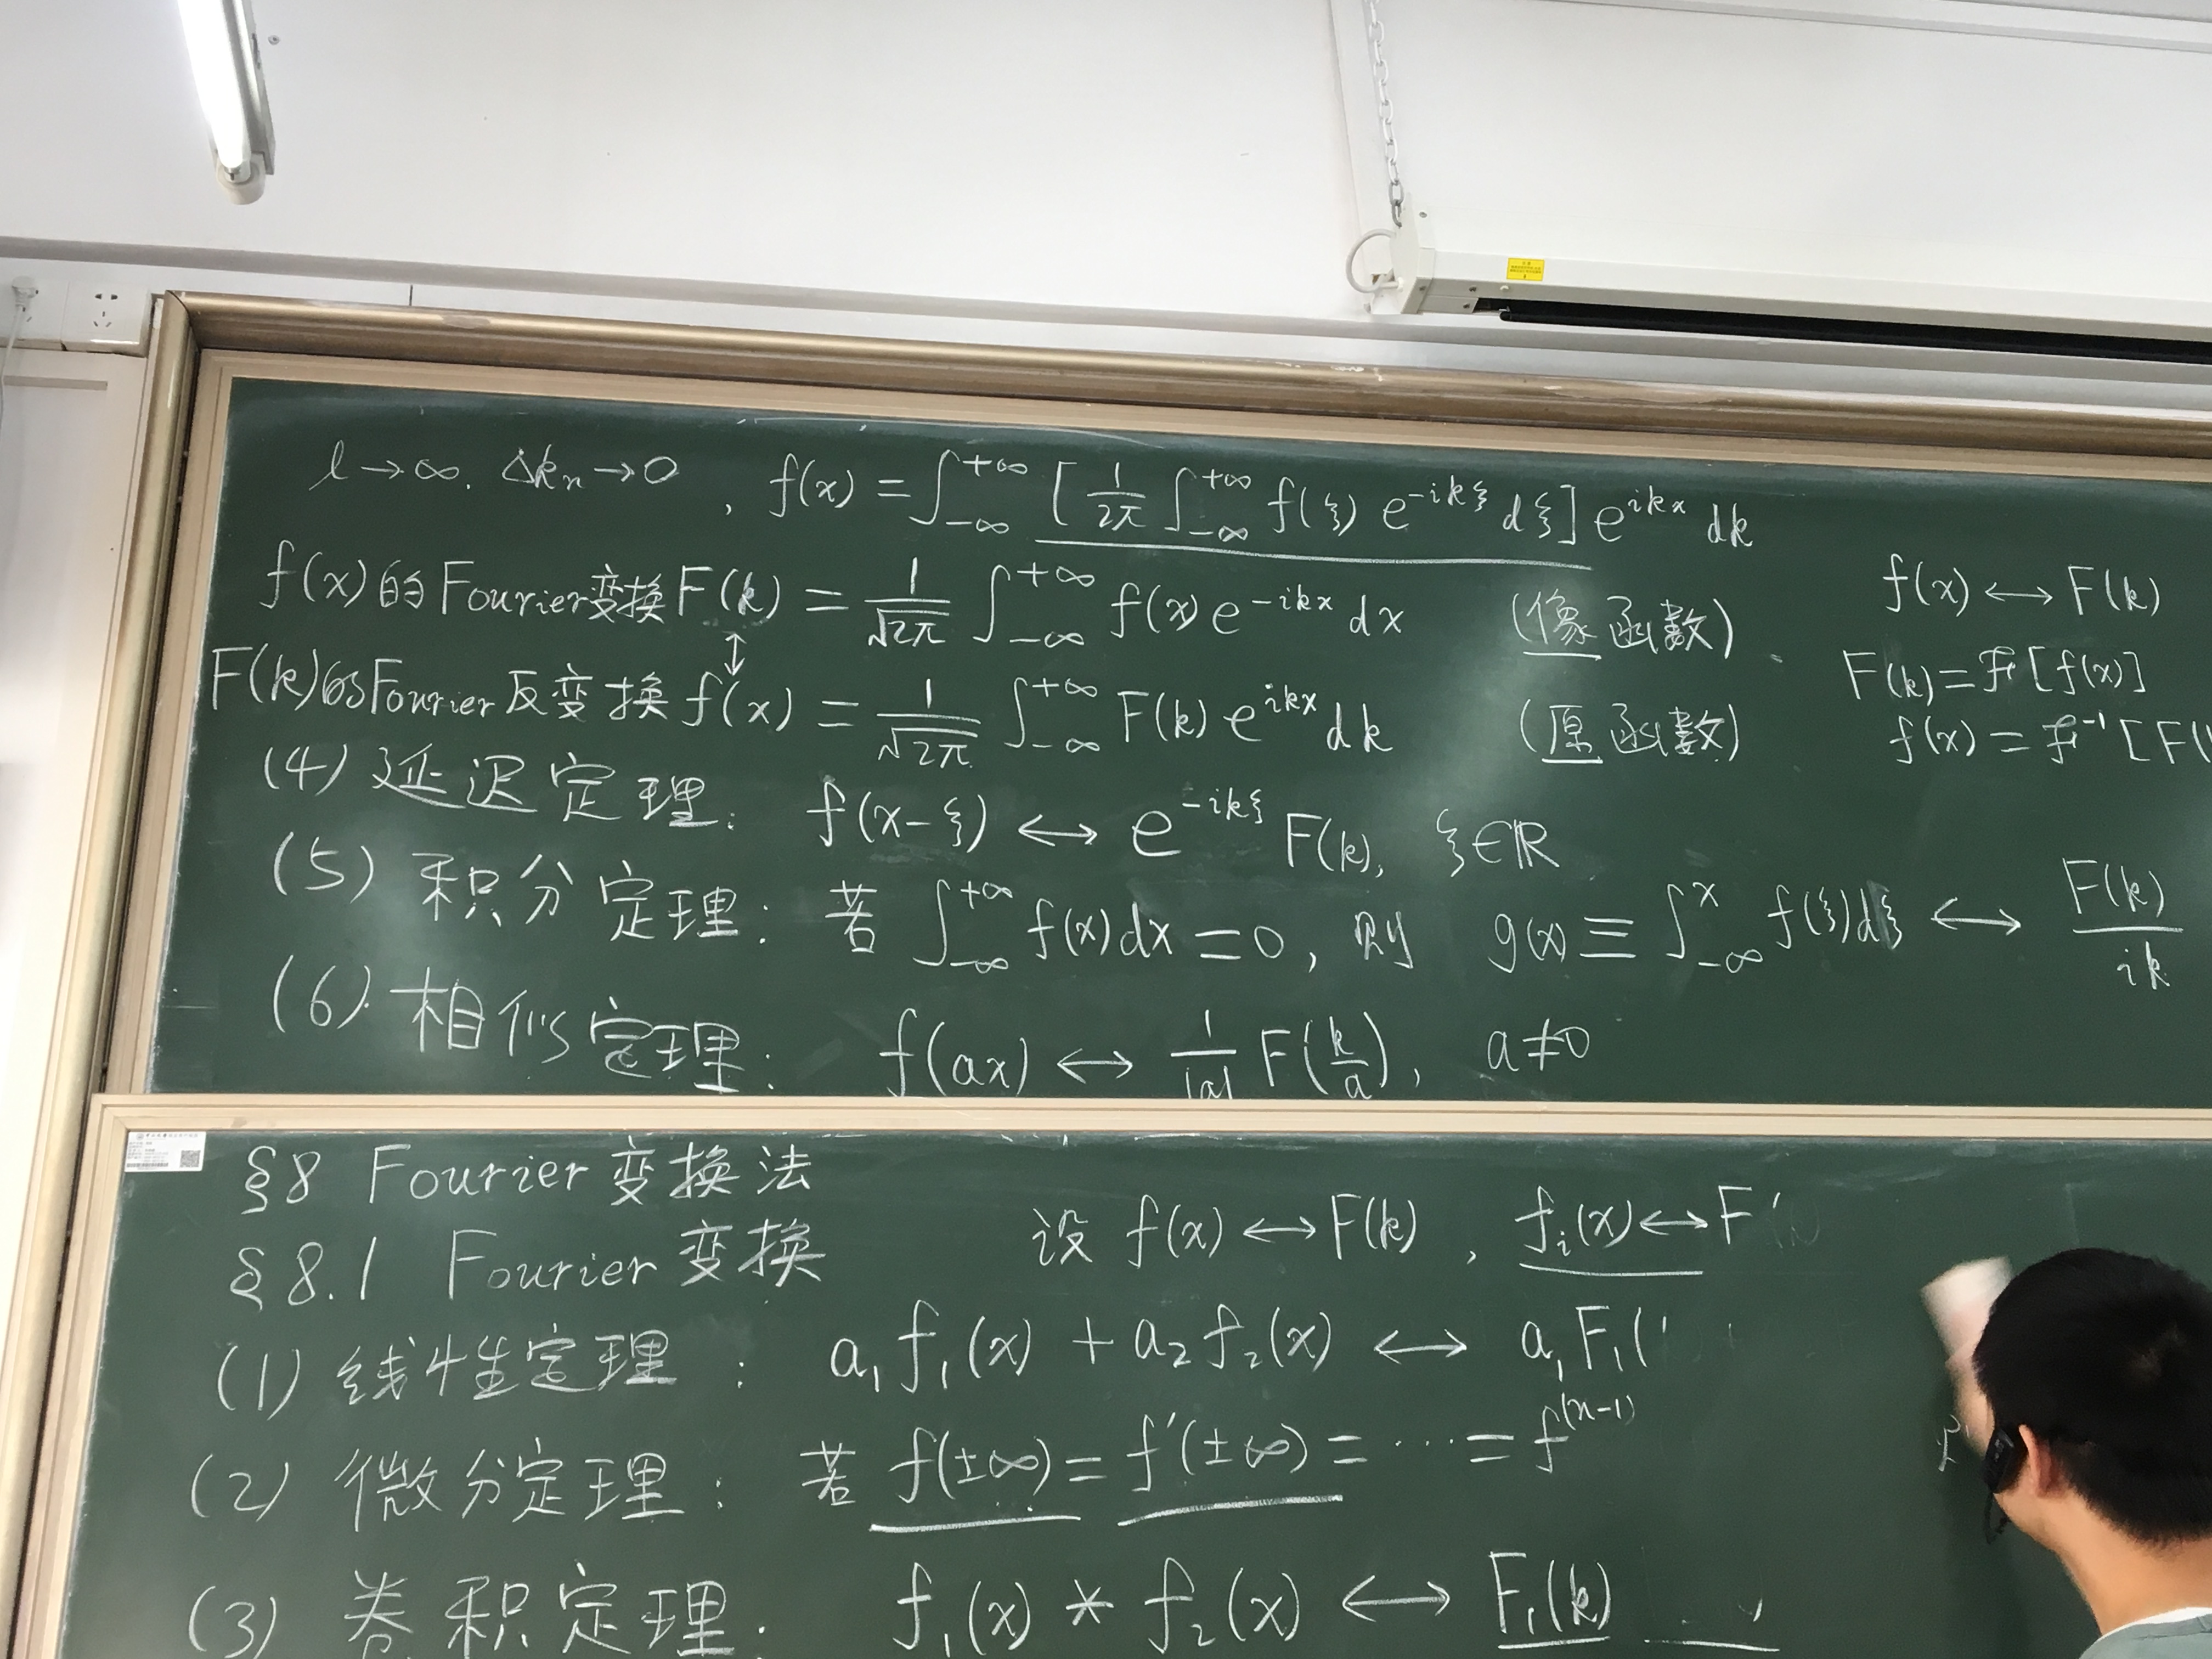 l→∞. Δkₙ→0 , f(x) = ∫_{-∞}^{+∞} [ 1/2π ∫_{-∞}^{+∞} f(ξ) e^{-ikξ} dξ ] e^{ikx} dk
f(x)的Fourier变换F(k) = 1/√2π ∫_{-∞}^{+∞} f(x) e^{-ikx} dx (像函数).
↕
F(k)的Fourier反变换f(x) = 1/√2π ∫_{-∞}^{+∞} F(k) e^{ikx} dk (原函数)
f(x) ↔ F(k)
F(k) = ℱ[f(x)]
f(x) = ℱ⁻¹[F(
(4) 延迟定理: f(x-ξ) ↔ e^{-ikξ} F(k), ξ∈ℝ
(5) 积分定理: 若 ∫_{-∞}^{+∞} f(x)dx = 0, 则 g(x) ≡ ∫_{-∞}^{x} f(ξ)dξ ↔ F(k)/ik
(6) 相似定理: f(ax) ↔ 1/|a| F(k/a), a≠0
§8 Fourier 变换法
§8.1 Fourier 变换 设 f(x) ↔ F(k) , fᵢ(x) ↔ F
(1) 线性定理: a₁f₁(x) + a₂f₂(x) ↔ a₁F₁(
(2) 微分定理: 若 f(±∞) = f′(±∞) = ⋯ = f^{(n-1)}
(3) 卷积定理: f₁(x) * f₂(x) ↔ F₁(k)